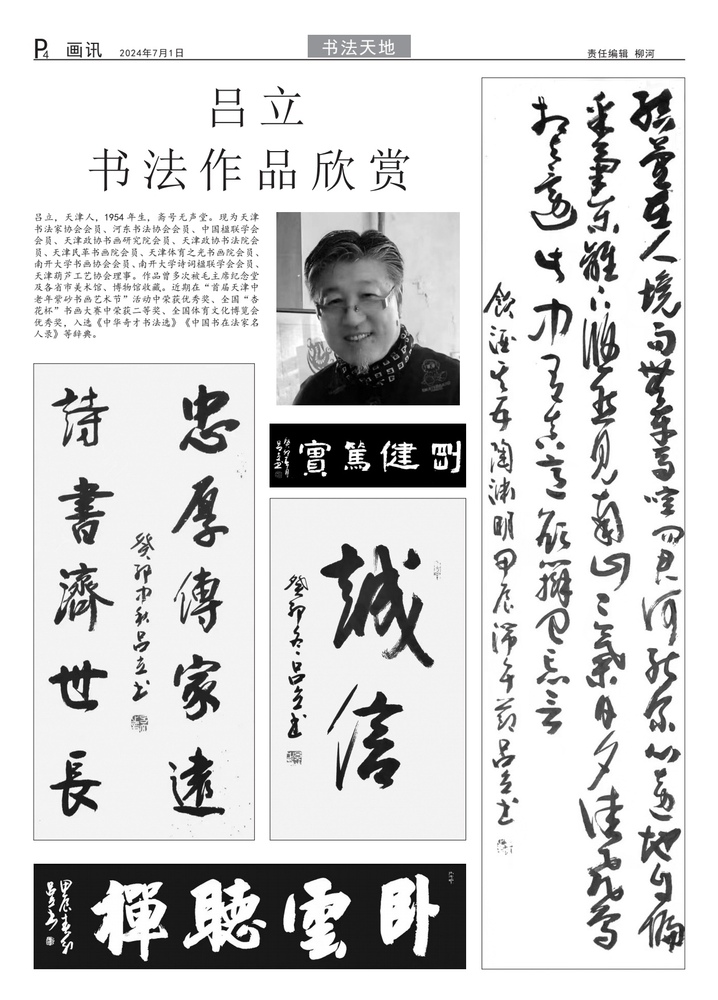 P4 画讯 2024年7月1日 书法天地 责任编辑 柳河
吕立
书法作品欣赏
吕立，天津人，1954年生，斋号无声堂。现为天津
书法家协会会员、河东书法协会会员、中国楹联学会
会员、天津政协书画研究院会员、天津政协书法院会
员、天津民革书画院会员、天津体育之光书画院会员、
南开大学书画协会会员、南开大学诗词楹联学会会员、
天津葫芦工艺协会理事。作品曾多次被毛主席纪念堂
及各省市美术馆、博物馆收藏。近期在“首届天津中
老年紫砂书画艺术节”活动中荣获优秀奖、全国“杏
花杯”书画大赛中荣获二等奖、全国体育文化博览会
优秀奖，入选《中华奇才书法选》《中国书在法家名
人录》等辞典。
忠厚傳家遠
詩書濟世長
癸卯中秋吕立书
剛健篤實
誠信
癸卯冬吕立书
卧雲聽禪
結廬在人境而無車馬喧問君何能爾心遠地自偏
采菊東籬下悠然見南山山氣日夕佳飛鳥
相與還此中有真意欲辯已忘言
飲酒其五陶渊明甲辰端午節吕立书